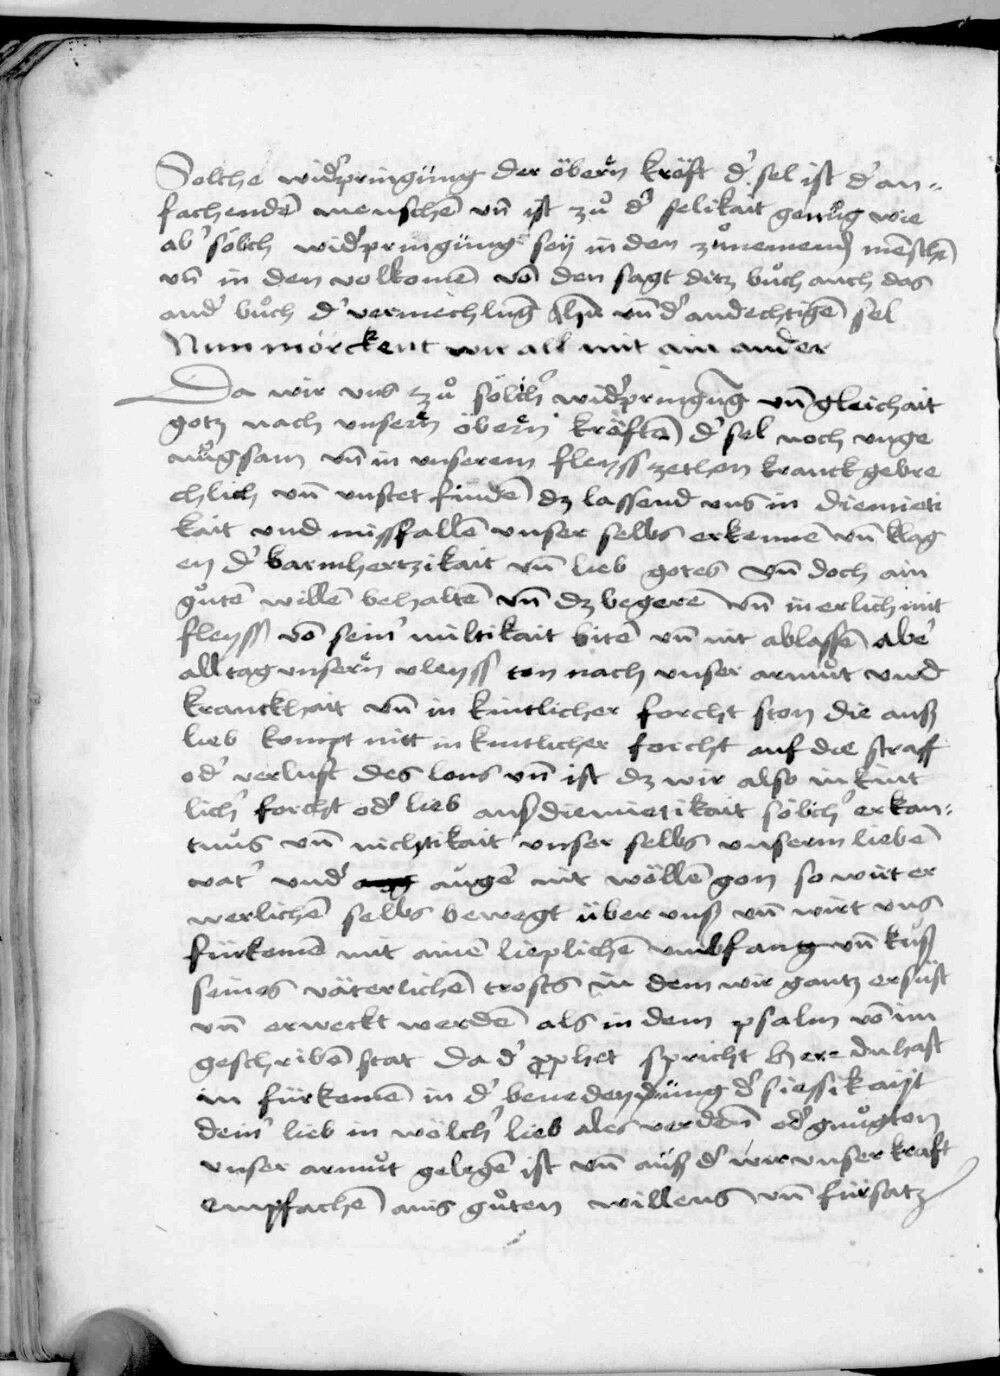 Solche widʼpringüng der öbern̄ kräft dʼ sel ist dʼ an=
fachendē menschē vn̄ ist zů dʼ selikait genůg wie
abʼ sölch widʼpringüng seÿ in den zůnemend mēschē
vn̄ in den volkomē vō den sagt ditz bůch auch das
andʼ bůch dʼ vermechlung vn̄ dʼ andechtigē sel
Nun mörckent wir all mit ain ander
Da wir uns zů sölchʼ widʼpringūg vn̄ gleichait
gotz nach vnsern̄ öbern̄ kräftē dʼ sel noch vnge
nůgsam vn̄ in vnserem fleyss zethon kranck gebre
chlich vn̄ vnstet findē dz lassend vns in diemieti
kait vnd missfallē vnser selbs erkennē vn̄ klag
en dʼ barmhertzikait vn̄ lieb gotes vn̄ doch ain
gůtē willē behaltē vn̄ dz begerē vn̄ inerlich mit
fleyss vō seinʼ miltikait bitē vn̄ nit ablassē abeʼ
all tag vnsern̄ vleyss ton nach vnser armůt vnd
kranckhait vn̄ in kintlicher forcht ston die auß
lieb kompt nitt in kintlicher forcht auf die straff
odʼ verlust des lons vn̄ ist dz wir also in kint
lichʼ forcht odʼ lieb auß diemietikait sölchʼ erkan=
tnus vn̄ nichtikait vnser selbs vnserm liebē
vatʼ vndʼ augē nit wöllē gon so wirt er
werlichē selbs bewegt über vnß vn̄ wirt vns
fürkomē mit ainē lieplichē vmbfang vn̄ kuß
seines väterlichē trosts in dem wir gantz ersüst
vn̄ erweckt werdē als in dem psalm vō im
geschribē stat Da dʼ pphet spricht here du hast
in fürkomē in dʼ benedeyung dʼ siessikaÿt
deinʼ lieb in wölchʼ lieb ales verden̄ odʼ gnůgton
vnser armůt gelegē ist vn̄ auß dʼ wir vnser kraft
empfachē ains gůten willens vn̄ fürsatz